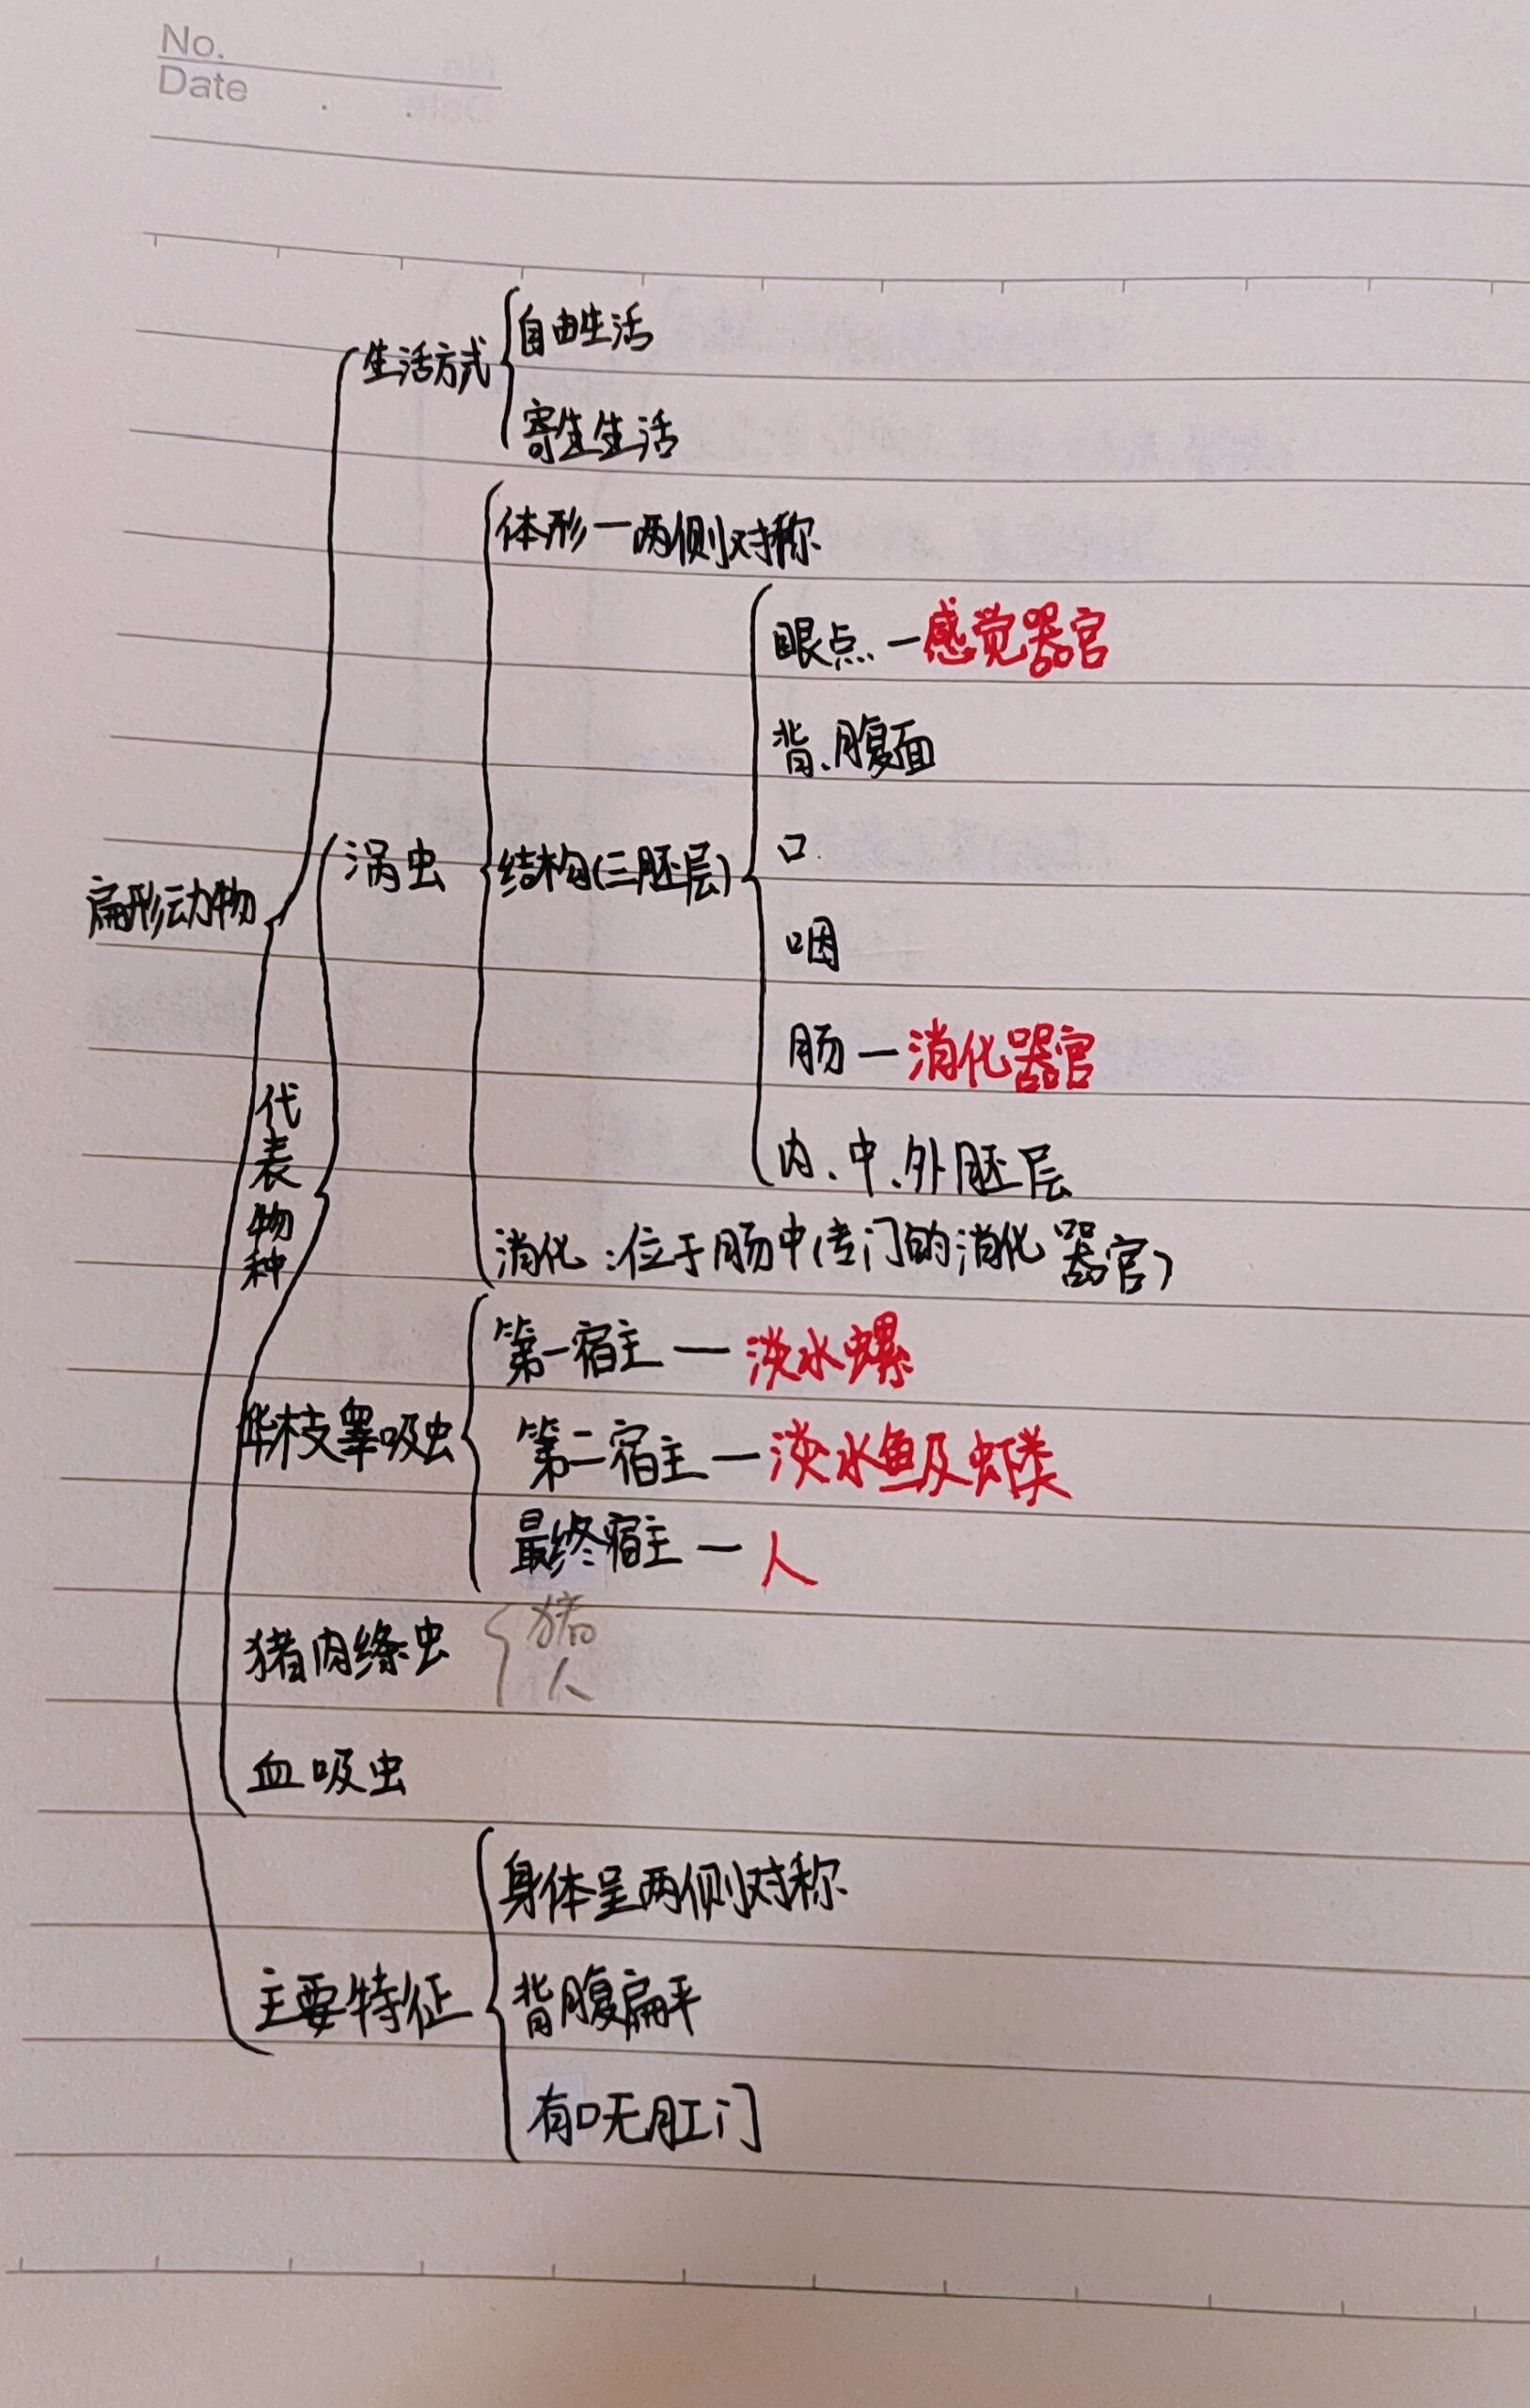 No.
Date
生活方式
自由生活
寄生生活
体形—两侧对称
眼点—感觉器官
背、腹面
口
涡虫
结构(三胚层)
扁形动物
咽
肠—消化器官
代表物种
内、中、外胚层
消化:位于肠中(专门的消化器官)
第一宿主—淡水螺
华枝睾吸虫
第二宿主—淡水鱼及虾类
最终宿主—人
猪肉绦虫
猪
人
血吸虫
身体呈两侧对称
主要特征
背腹扁平
有口无肛门